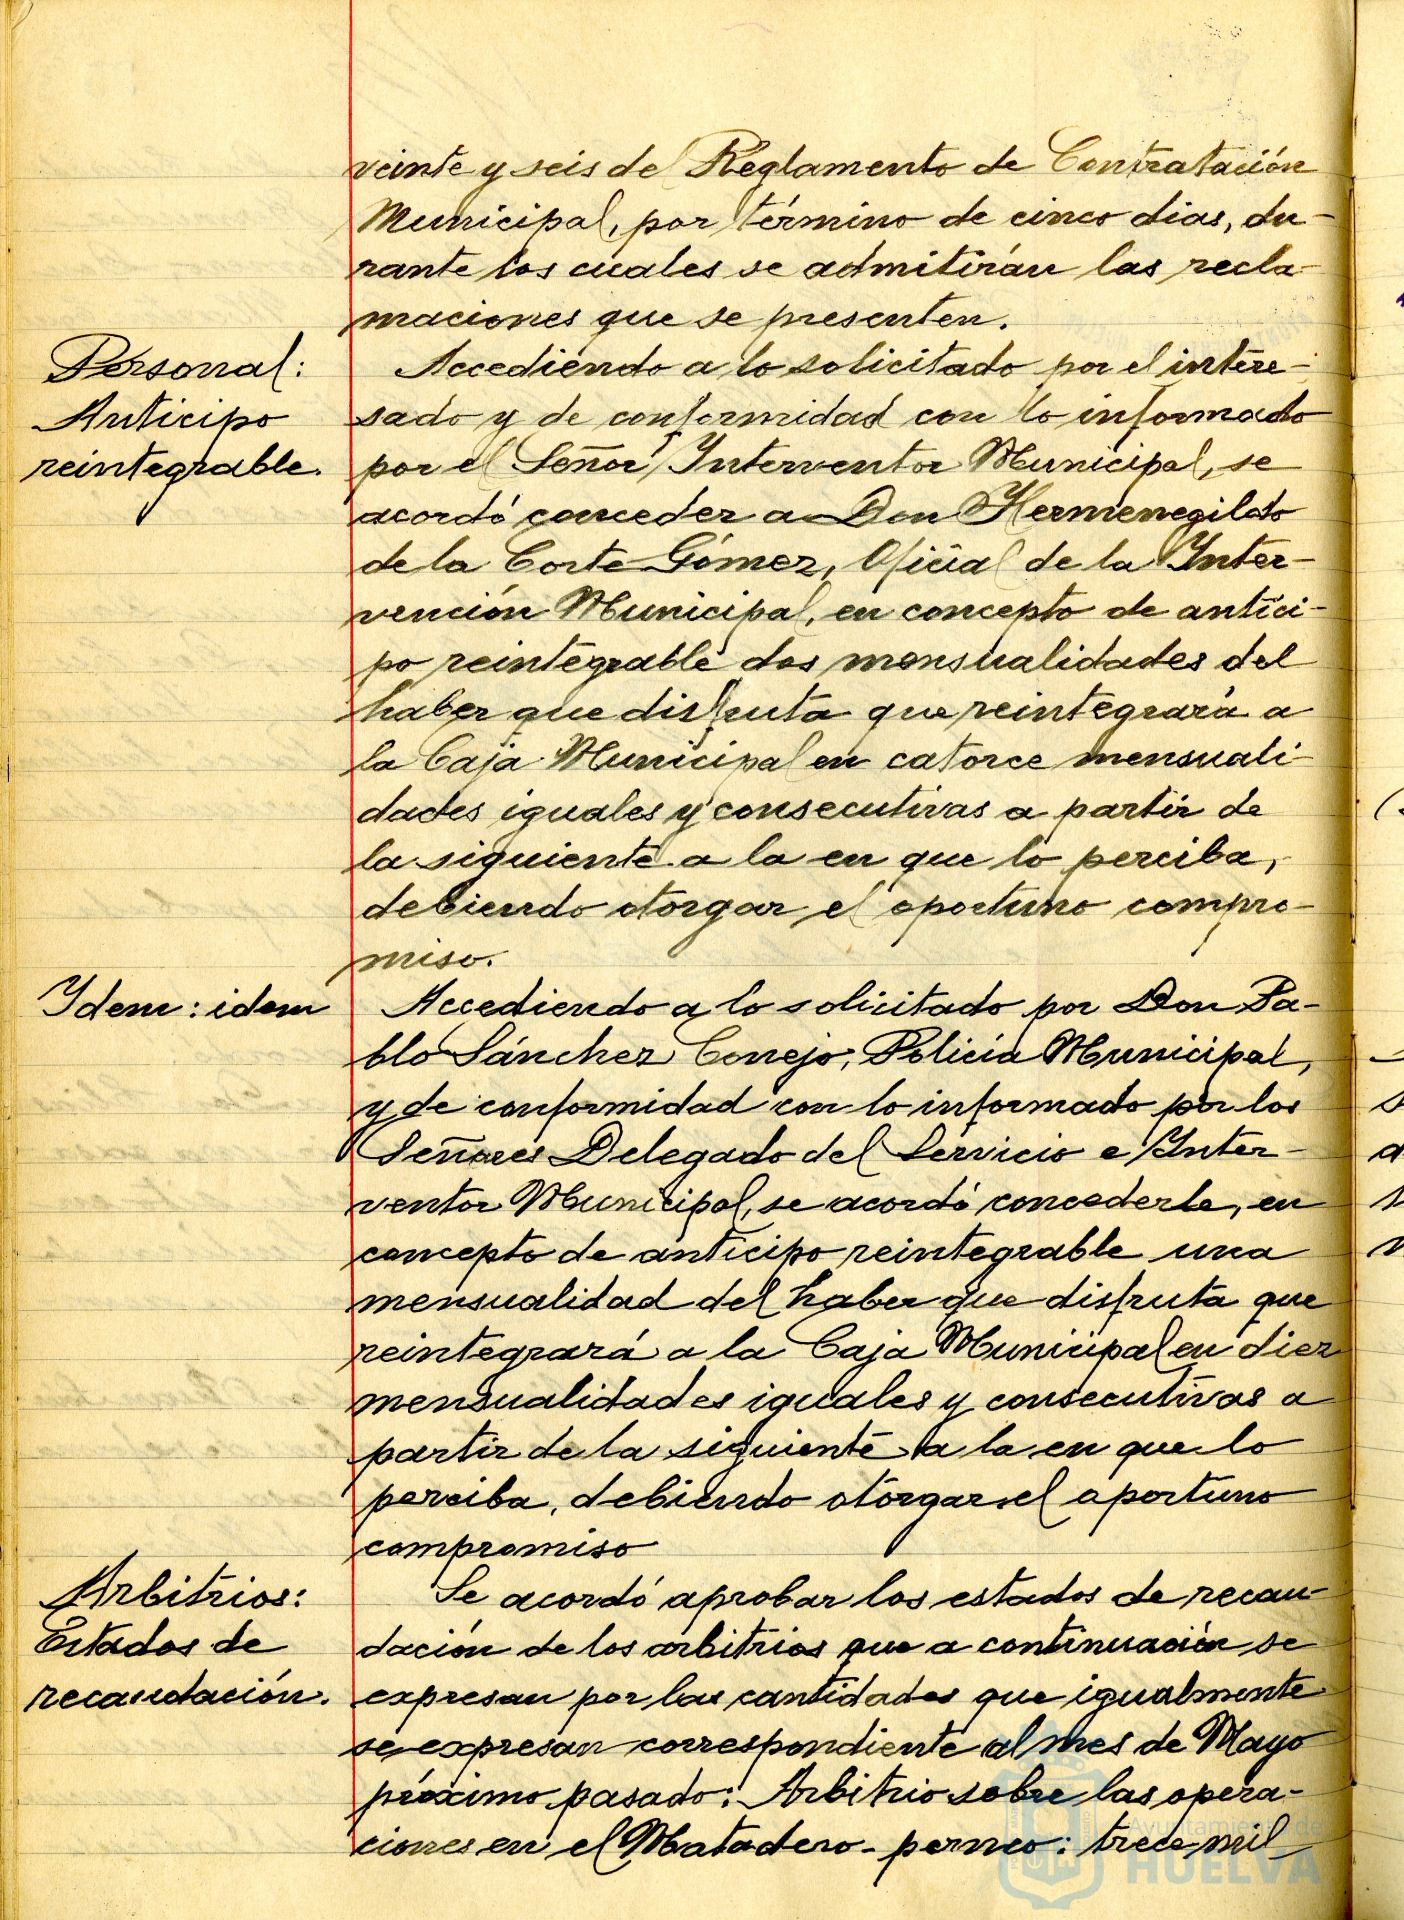 veinte y seis del Reglamento de Contratación
Municipal, por término de cinco dias, du-
rante los cuales se admitirán las recla-
maciones que se presenten.
Personal:
Anticipo
reintegrable.
Accediendo a lo solicitado por el intere-
sado y de conformidad con lo informado
por el Señor Interventor Municipal, se
acordó conceder a Don Hermenegildo
de la Corte Gómez, Oficial de la Inter-
vención Municipal, en concepto de antici-
po reintegrable dos mensualidades del
haber que disfruta que reintegrará a
la Caja Municipal en catorce mensuali-
dades iguales y consecutivas a partir de
la siguiente a la en que lo perciba,
debiendo otorgar el oportuno compro-
miso.
Idem: idem
Accediendo a lo solicitado por Don Pa-
blo Sánchez Conejo, Policia Municipal,
y de conformidad con lo informado por los
Señores Delegado del Servicio e Inter-
ventor Municipal, se acordó concederle, en
concepto de anticipo reintegrable una
mensualidad del haber que disfruta que
reintegrará a la Caja Municipal en diez
mensualidades iguales y consecutivas a
partir de la siguiente a la en que lo
perciba, debiendo otorgar el oportuno
compromiso
Arbitrios:
Estados de
recaudación.
Se acordó aprobar los estados de recau-
dación de los arbitrios que a continuación se
expresan por las cantidades que igualmente
se expresan correspondiente al mes de Mayo
próximo pasado: Arbitrio sobre las opera-
ciones en el Matadero- perneo: trece mil
Ayuntamiento de
HUELVA